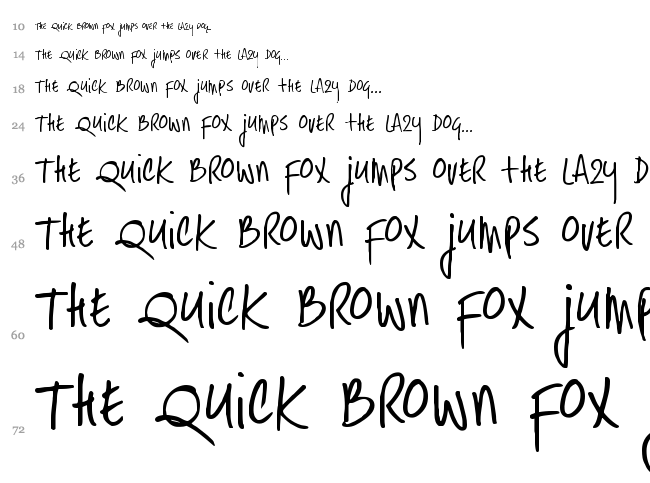 10 THE QUiCK BROWN FOX jUMPS OVER tHE LAZY DOG...
14 THE QUiCK BROWN FOX jUMPS OVER tHE LAZY DOG...
18 THE QUiCK BROWN FOX jUMPS OVER tHE LAZY DOG...
24 THE QUiCK BROWN FOX jUMPS OVER tHE LAZY DOG...
36 THE QUiCK BROWN FOX jUMPS OVER tHE LAZY D
48 THE QUiCK BROWN FOX jUMPS OVER
60 THE QUiCK BROWN FOX jUMP
72 THE QUiCK BROWN FOX